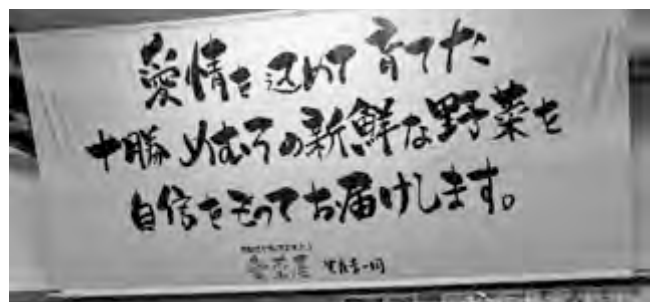 愛情を込めて育てた
十勝めむろの新鮮な野菜を
自信をもってお届けします。
愛菜屋 生産者一同